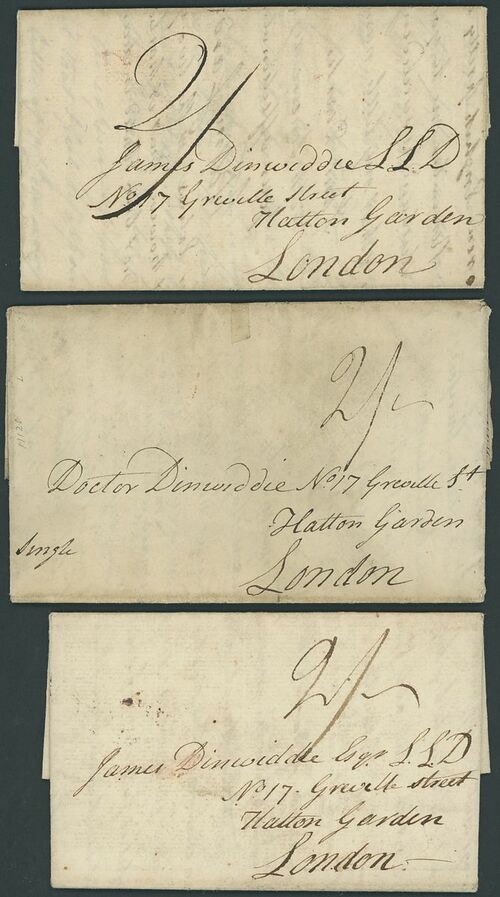 2/
James Dinwiddie LLD
No. 17 Greville Street
Hatton Garden
London
2/-
Doctor Dinwiddie No. 17 Greville St
Hatton Garden
Single
London
2/-
James Dinwiddie Esqr L.L.D
No. 17. Greville street
Hatton Garden
London